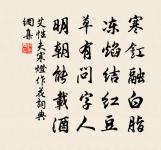 寒釭融白脂
冻焰结红豆
草有问字人
明朝能载酒
艾性夫寒灯作花词典
网集